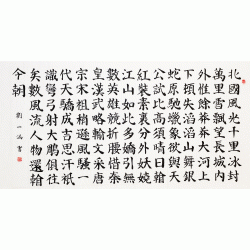 北國風光千里冰封
萬里雪飄望長城內
外惟餘莽莽大河上
下頓失滔滔山舞銀
蛇原馳蠟象欲與天
公試比高須晴日看
紅裝素裹分外妖嬈
江山如此多嬌引無
數英雄競折腰惜秦
皇漢武略輸文采唐
宗宋祖稍遜風騷一
代天驕成吉思汗祇
識彎弓射大鵰俱往
矣數風流人物還看
今朝